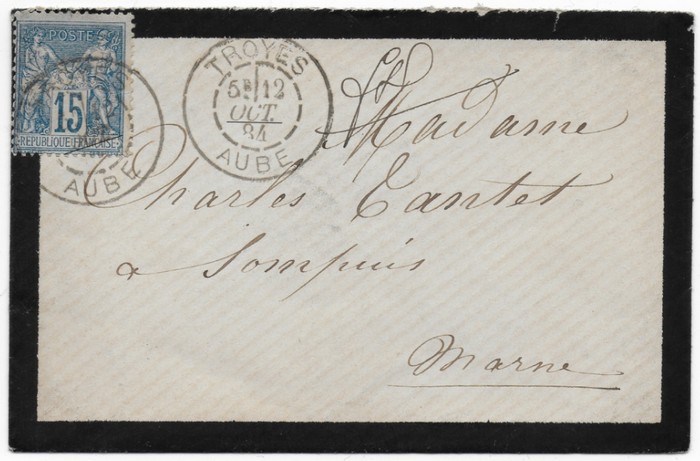 POSTE
15
REPUBLIQUE FRANÇAISE
AUBE
TROYES
5E 12
OCT.
84
AUBE
Madame
Charles Tantet
a Sompuis
Marne